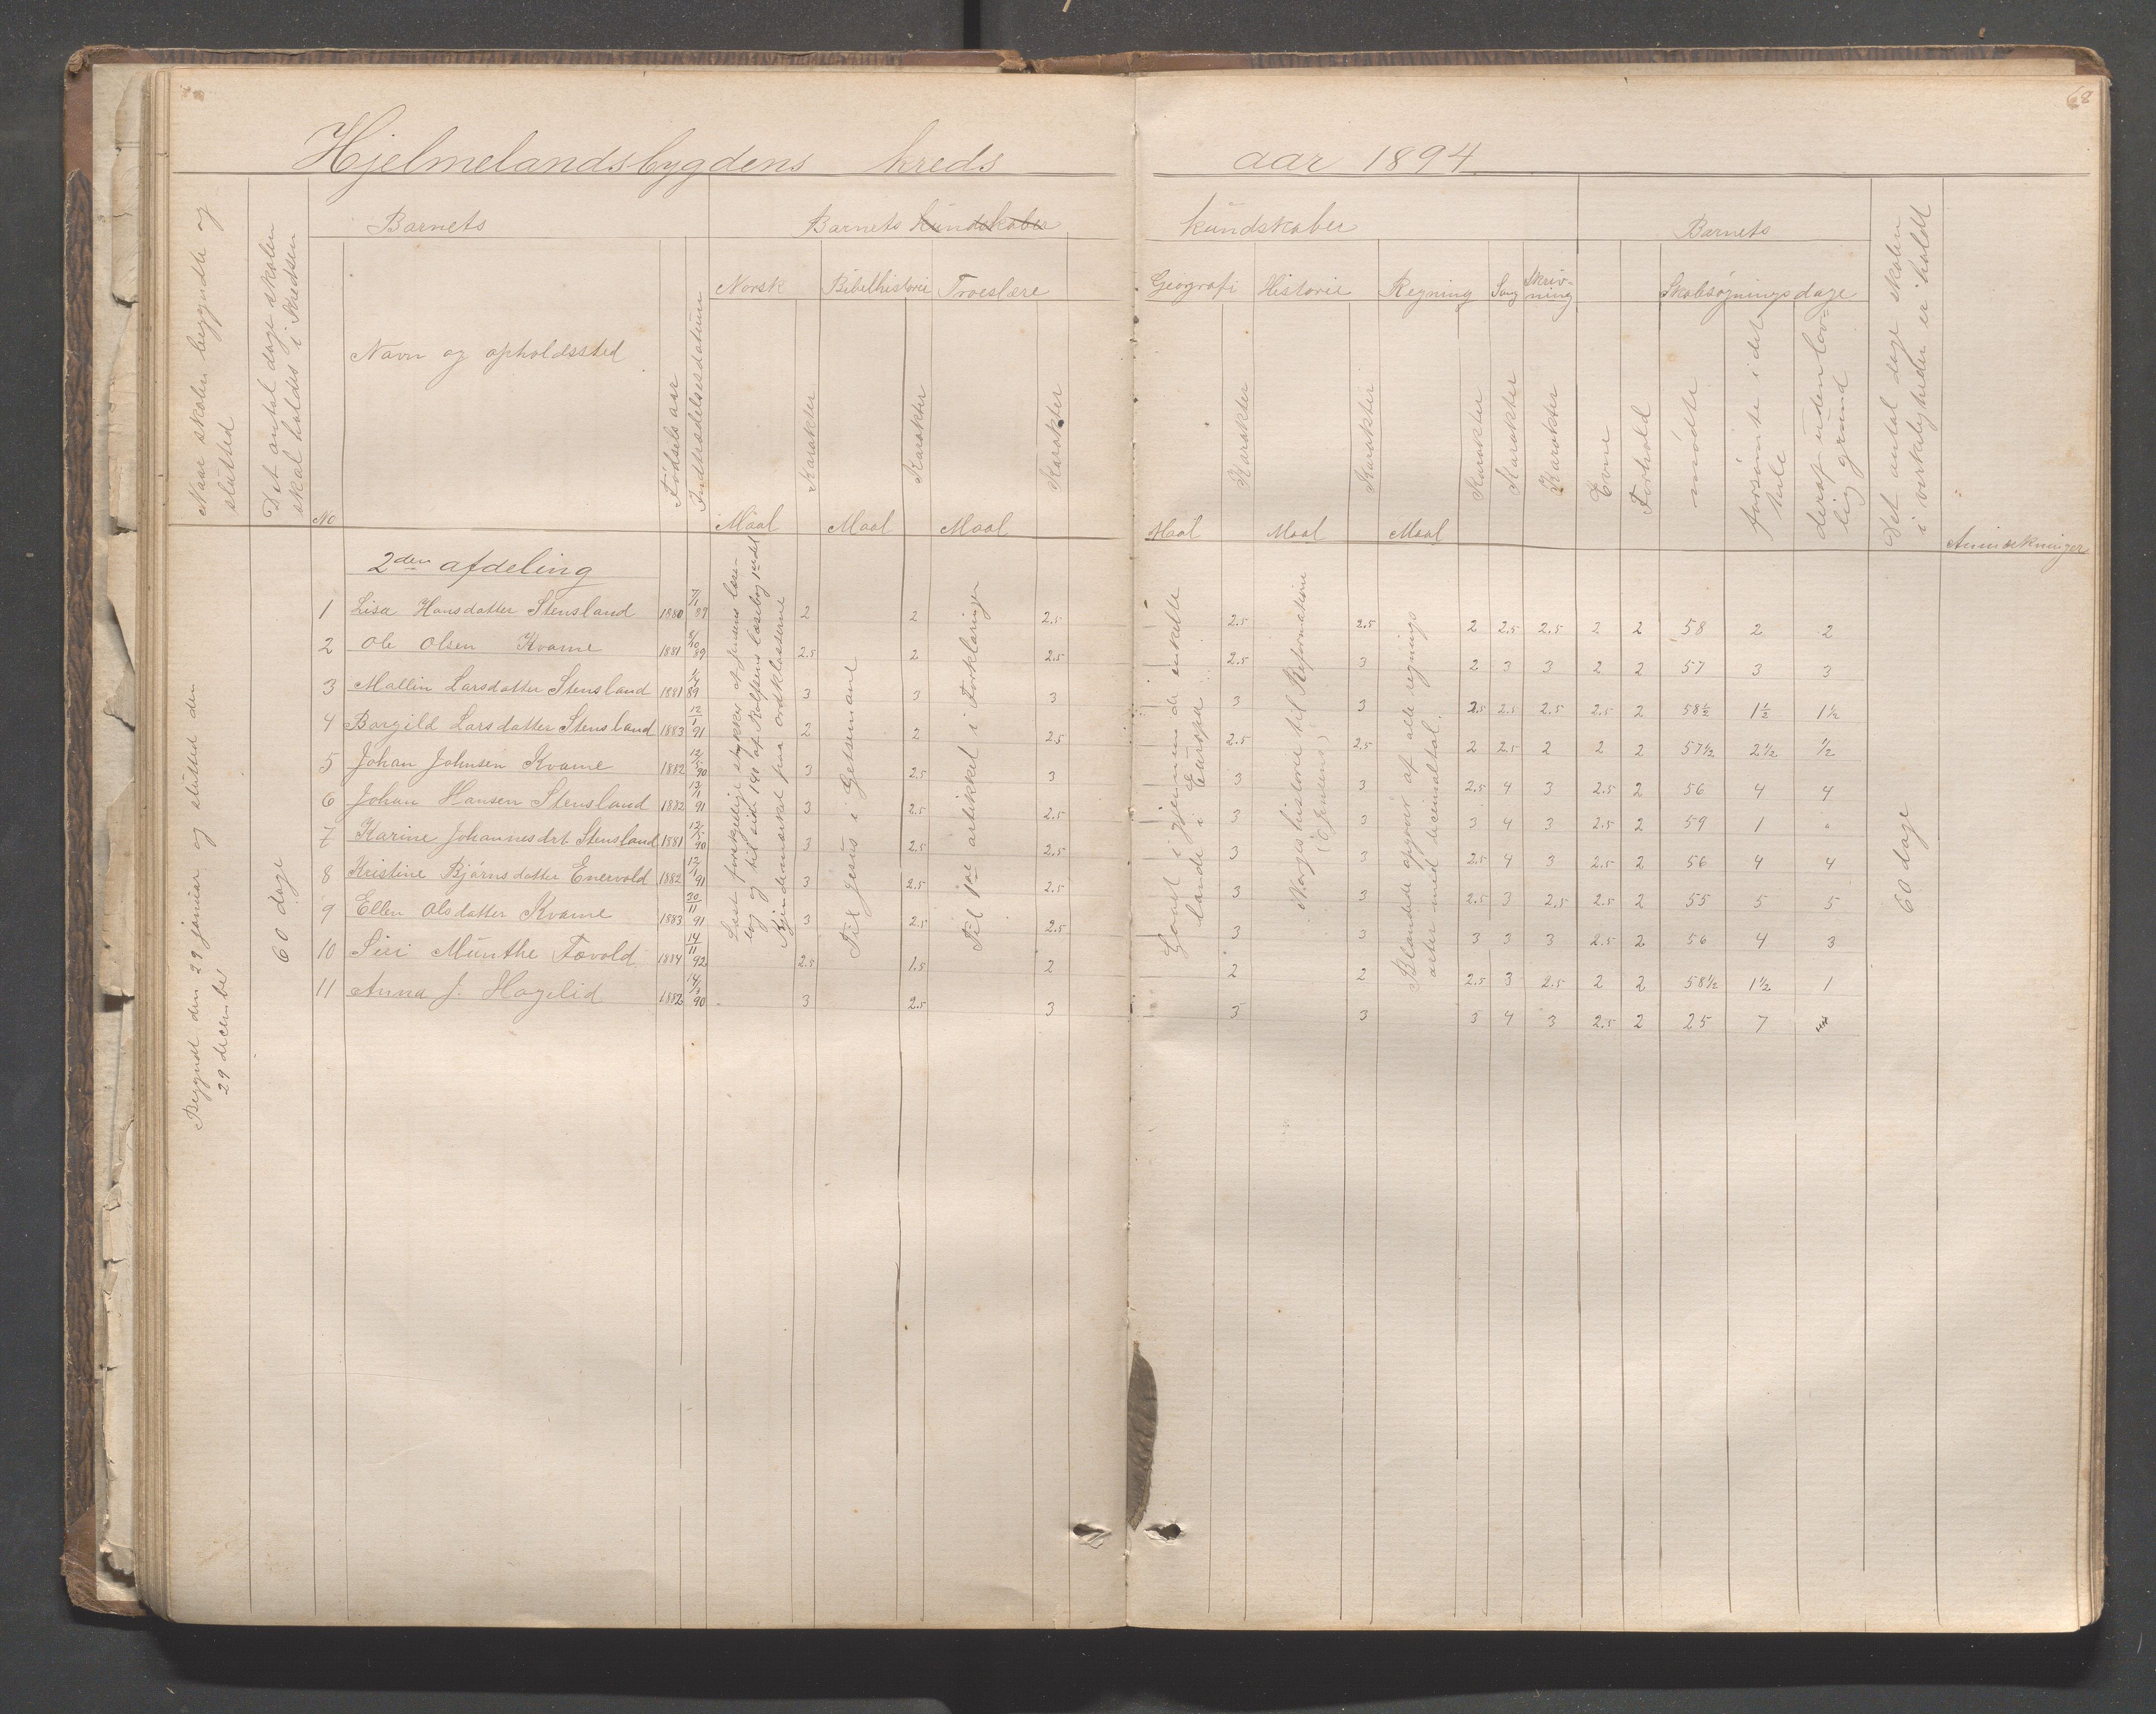 68
Hjelmelandsbygdens kreds aar 1894
Naar skolen begyndte og slutted
Det antal dage skolen skal holdes i Kredsen
Barnets
Barnets kundskaber
kundskaber
Barnets
Det antal dage skolen i virkeligheden er holdt
No
Navn og opholdssted
Fødsels aar
Indtrædelsesdatum
Norsk
Bibelhistorie
Troeslære
Geografi
Historie
Regning
Sang
Skriv-
ning
Skolesøgningsdage
Maal
Karakter
Maal
Karakter
Maal
Karakter
Maal
Karakter
Maal
Karakter
Maal
Karakter
Karakter
Karakter
Evne
Forhold
mødte
forsømte i det hele
deraf uden lov-
lig grund
Anmærkninger
Begyndt den 29 januar og slutted den
29 december
60 dage
2den afdeling
1 Lisa Hansdatter Stensland 1880 7/1 89 2 2 2.5 2.5 2.5 2 2.5 2.5 2 2 58 2 2
2 Ole Olsen Kvame 1881 8/10 89 2.5 2 2.5 2.5 3 2 3 3 2 2 57 3 3
3 Mallin Larsdatter Stensland 1881 89 3 3 3 3 3 2.5 2.5 2.5 2.5 2 58½ 1½ 1½
4 Borgild Larsdatter Stensland 1883 12/1 91 2 2 2.5 2.5 2.5 2 2.5 2 2 2 57½ 2½ ½
5 Johan Johnsen Kvame 1882 12/5 90 3 2.5 3 3 3 2.5 4 3 2.5 2 56 4 4
6 Johan Hansen Stensland 1882 13/11 91 3 2.5 2.5 3 3 3 4 3 2.5 2 59 1 "
7 Karine Johannesdat Stensland 1881 12/5 90 3 2.5 2.5 3 3 2.5 4 3 2.5 2 56 4 4
8 Kristine Bjørnsdatter Enervold 1882 12/1 91 3 2.5 2.5 3 3 2.5 3 2.5 2.5 2 55 5 5
9 Ellen Olsdatter Kvame 1883 20/11 91 3 2.5 2.5 3 3 3 3 3 2.5 2 56 4 3
10 Siri Munthe Tøvold 1884 14/11 92 2.5 1.5 2 2 2 2.5 3 2.5 2 2 58½ 1½ 1
11 Anna J. Hagelid 1882 14/3 90 3 2.5 3 3 3 3 4 3 2.5 2 25 7
Læst forskjellige stykker af Jensens læse-
bog og til side 190 af Rolfsens læsebog 1ste del
Kjendemærket paa ordklasserne
Til Jesus i Getsemane
Til 1ste artikkel i Forklaringen
Gaaet igjennem de enkelte
lande i Europa
Norges historie til Reformationen
(E Jensens)
Blandede opgaver af alle regnings
arter med decimaltal.
60 dage